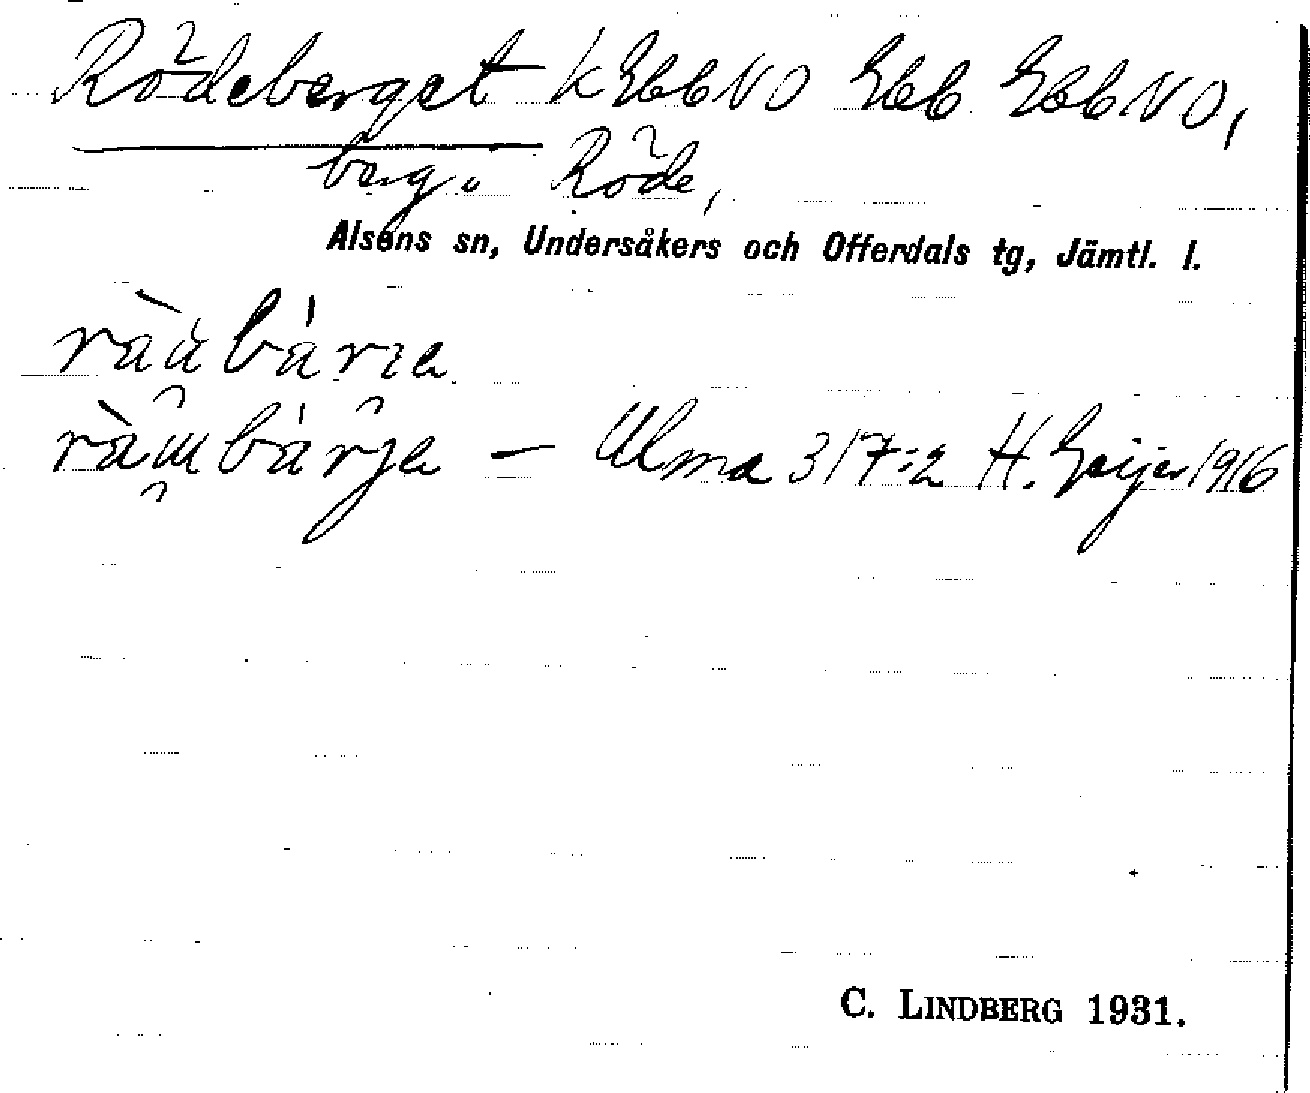 Rödeberget k Ebb NO Ebb Ebb NO,
berg i Röde,
Alsens sn, Undersåkers och Offerdals tg, Jämtl. l.
— Ulma 317:2 H. Geijer 1916
C. LINDBERG 1931.